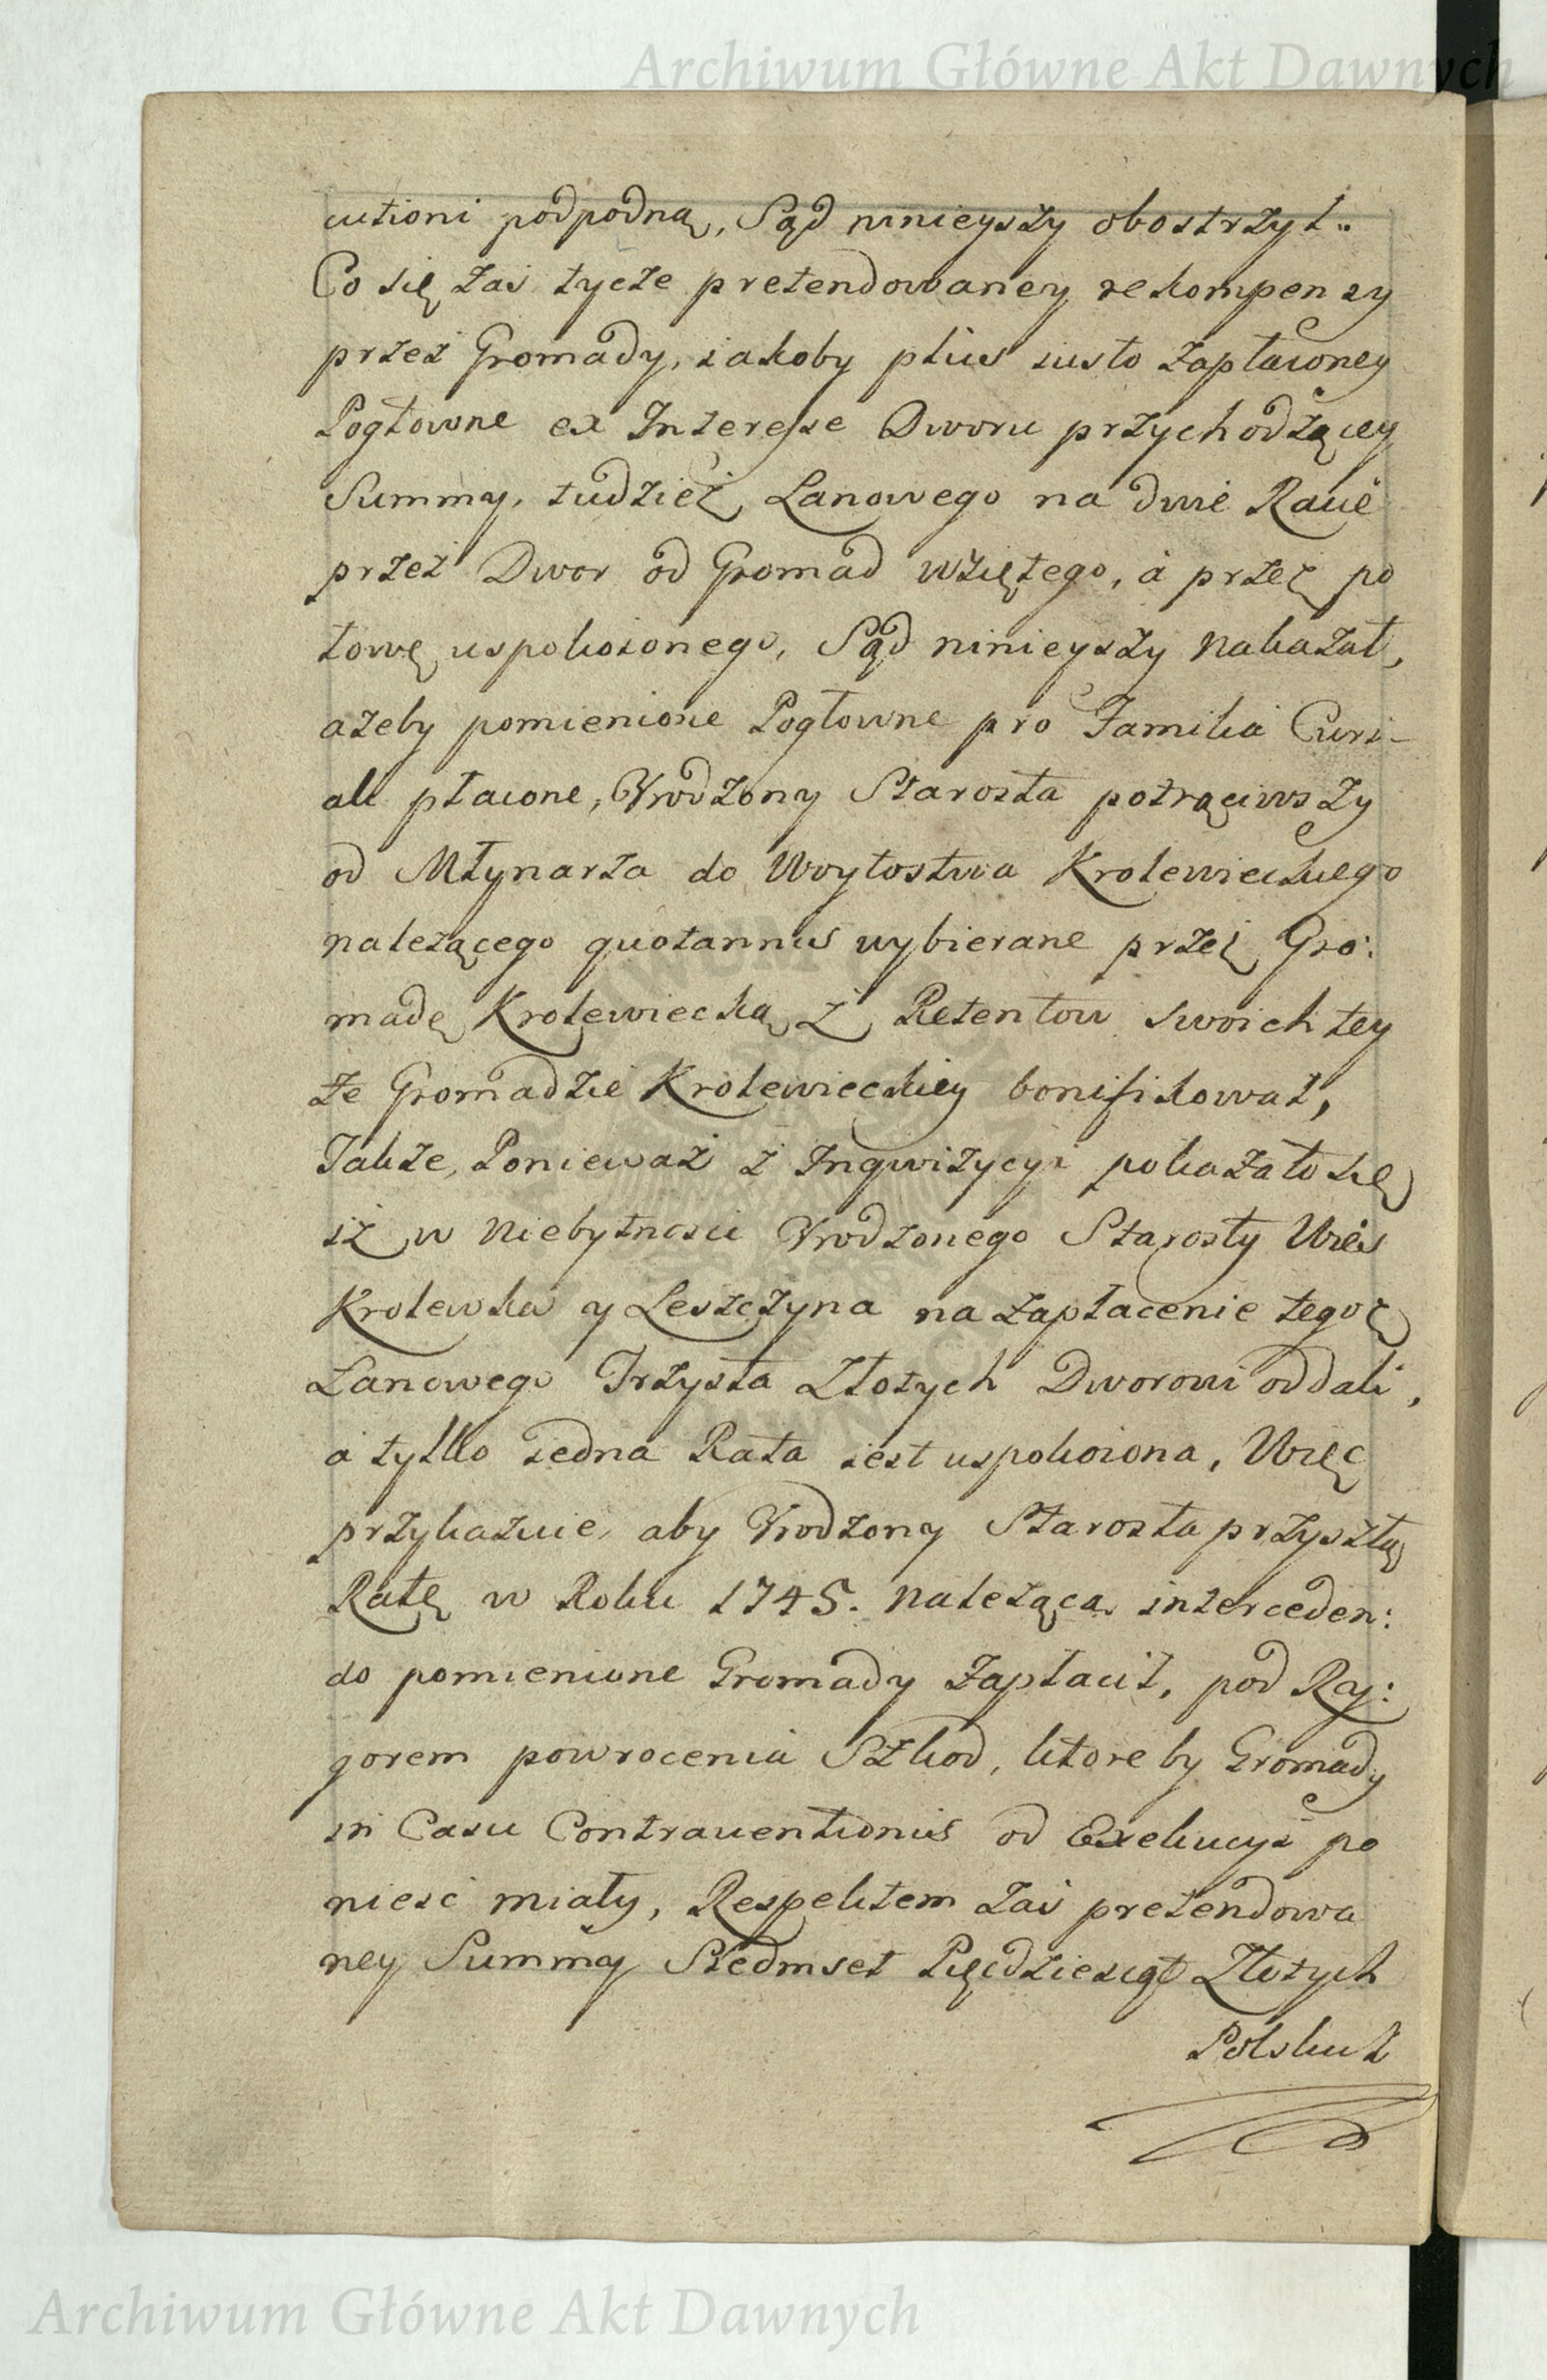 Archiwum Główne Akt Dawnych
cutioni podpodną, Sąd ninieyszy obostrzył..
Co się zaś tycze pretendowaney rekompenzy
przez Gromady, iakoby plus iusto zapłaconey
Pogłowne ex Interesse Dworu przychodzącey
Summy, tudzież Lanowego na dwie Racie
przez Dwor od Gromad wziętego, á przez po
łowę uspokoionego, Sąd ninieyszy nakazał,
ażeby pomienione Pogłowne pro Familia Curi-
ali płacone, Vrodzony Starosta potrąciwszy
od Młynarza do Woytostwa Krolewieckiego
należącego quotannis wybierane przez Gro:
madę Krolewiecką z Retentow swoich tey
że Gromadzie Krolewieckiey bonifikował,
Także, Ponieważ z Inqwizycyi pokazało się
iż w niebytnosci Vrodzonego Starosty Wieś
Krolewska y Leszczyna na zapłacenie tegoż
Lanowego Trzysta Złotych Dworowi oddali,
a tylko iedna Rata iest uspokoiona, Więc
przykazuie, aby Vrodzony Starosta przyszłą
Ratę w Roku 1745. należącą interceden:
do pomienione Gromady zapłacił, pod Ry:
gorem powrocenia Szkod, ktore by Gromady
in Casu Contrauentionis od Exekucyi po
nieść miały, Respektem zaś pretendowa
ney Summy Siedmset Pięcdziesiąt Złotych
Polskich
Archiwum Główne Akt Dawnych